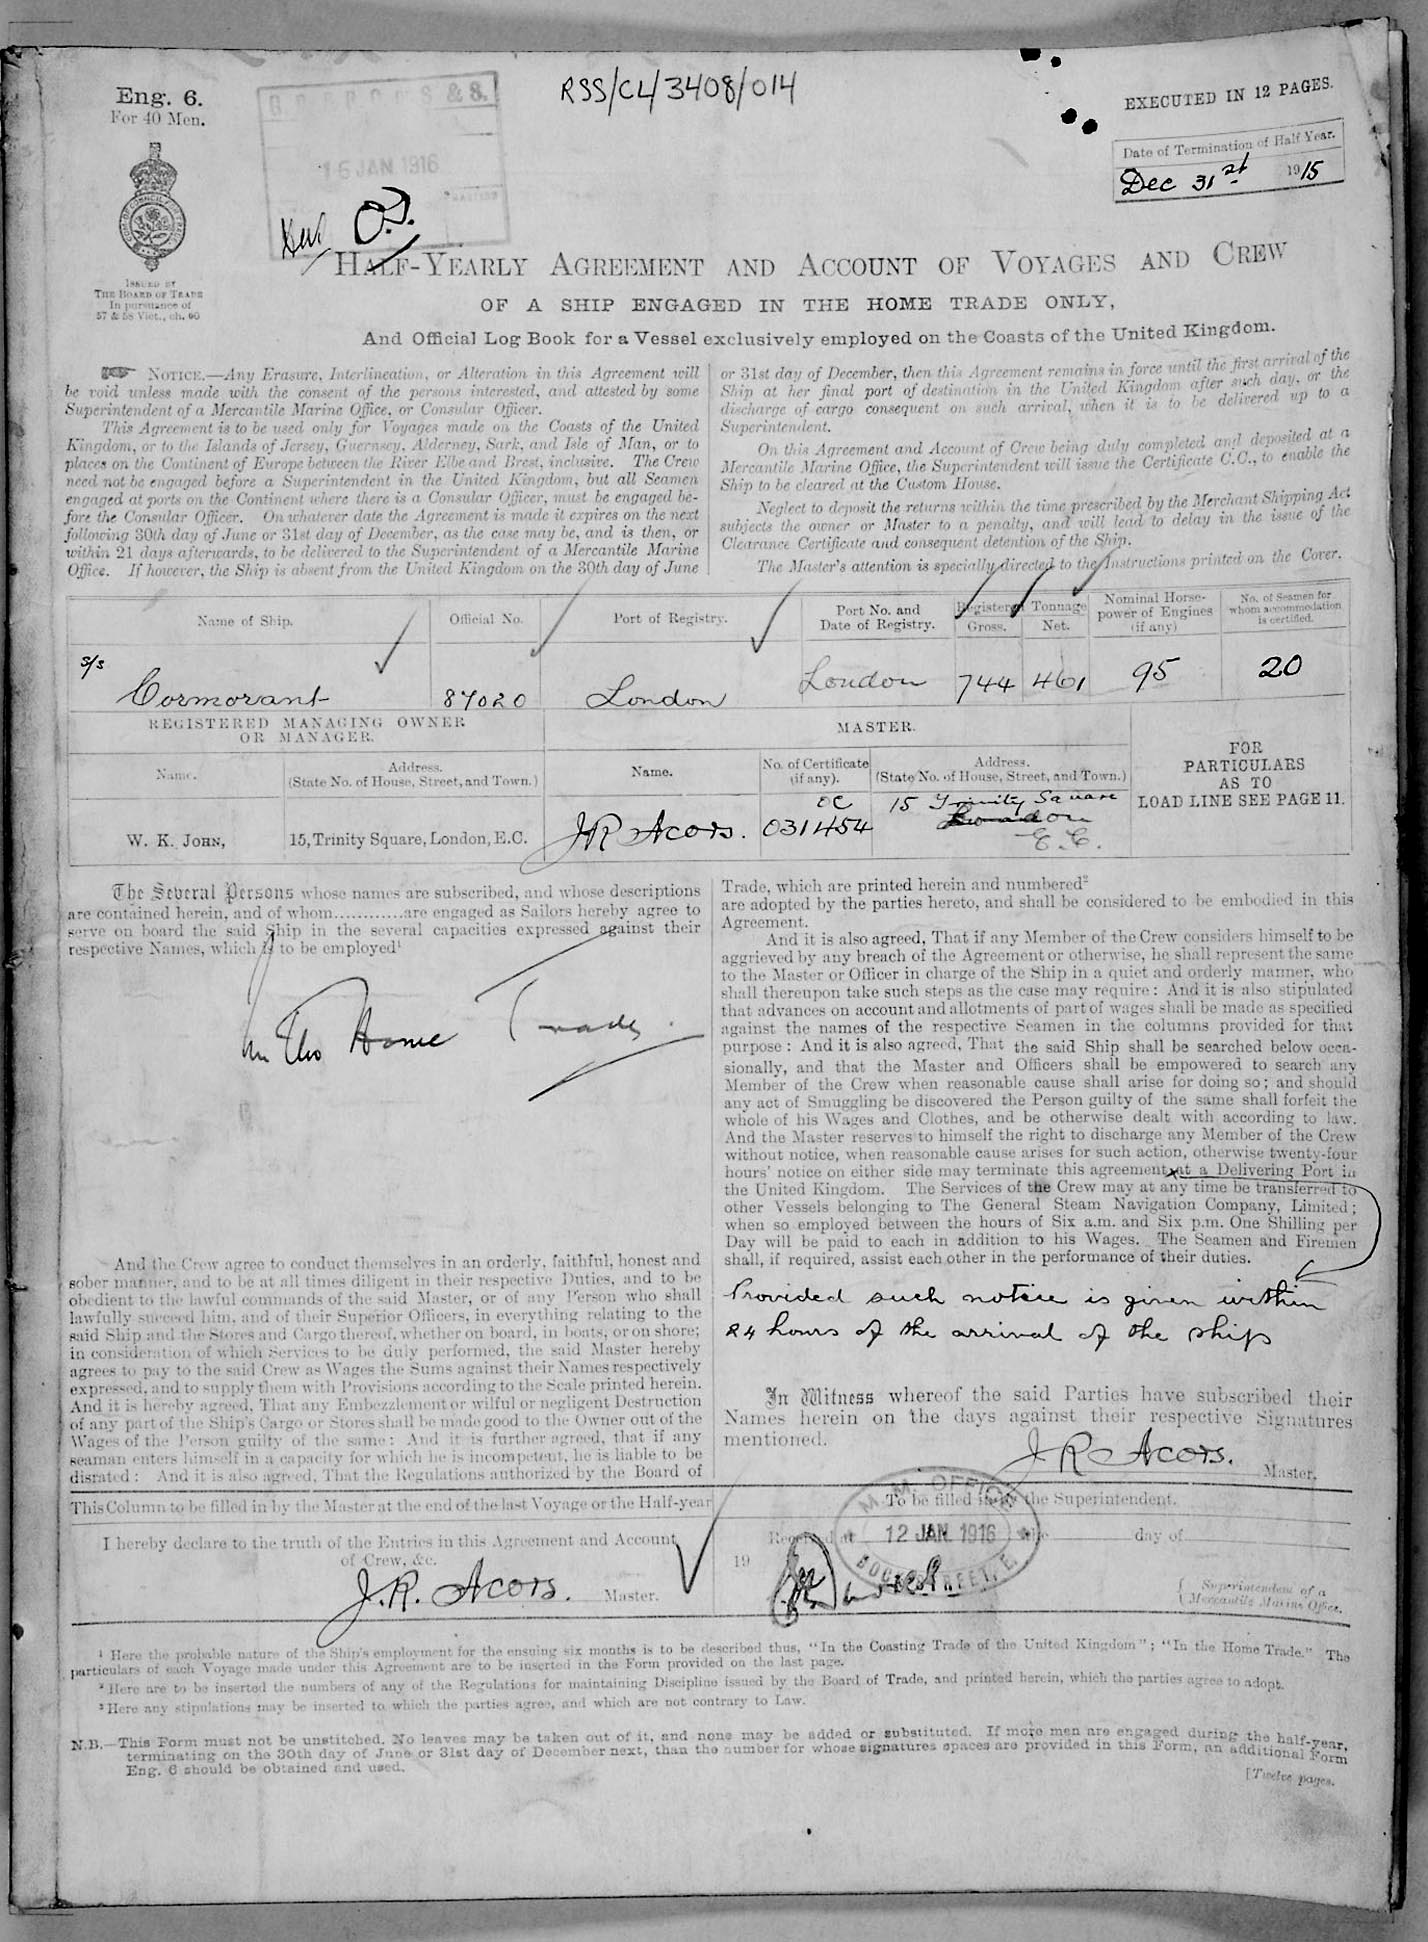 RSS/CL/3408/014
Eng. 6.
For 40 Men.
EXECUTED IN 12 PAGES.
& S.
15 JAN 1916
Date of Termination of Half Year.
Dec 31st 1915
ISSUED BY
THE BOARD OF TRADE
In pursuance of
57 & 58 Vict., ch. 60
HALF-YEARLY AGREEMENT AND ACCOUNT OF VOYAGES AND CREW
OF A SHIP ENGAGED IN THE HOME TRADE ONLY,
And Official Log Book for a Vessel exclusively employed on the Coasts of the United Kingdom.
NOTICE.—Any Erasure, Interlineation, or Alteration in this Agreement will
be void unless made with the consent of the persons interested, and attested by some
Superintendent of a Mercantile Marine Office, or Consular Officer.
This Agreement is to be used only for Voyages made on the Coasts of the United
Kingdom, or to the Islands of Jersey, Guernsey, Alderney, Sark, and Isle of Man, or to
places on the Continent of Europe between the River Elbe and Brest, inclusive. The Crew
need not be engaged before a Superintendent in the United Kingdom, but all Seamen
engaged at ports on the Continent where there is a Consular Officer, must be engaged be-
fore the Consular Officer. On whatever date the Agreement is made it expires on the next
following 30th day of June or 31st day of December, as the case may be, and is then, or
within 21 days afterwards, to be delivered to the Superintendent of a Mercantile Marine
Office. If however, the Ship is absent from the United Kingdom on the 30th day of June
or 31st day of December, then this Agreement remains in force until the first arrival of the
Ship at her final port of destination in the United Kingdom after such day, or the
discharge of cargo consequent on such arrival, when it is to be delivered up to a
Superintendent.
On this Agreement and Account of Crew being duly completed and deposited at a
Mercantile Marine Office, the Superintendent will issue the Certificate C.C., to enable the
Ship to be cleared at the Custom House.
Neglect to deposit the returns within the time prescribed by the Merchant Shipping Act
subjects the owner or Master to a penalty, and will lead to delay in the issue of the
Clearance Certificate and consequent detention of the Ship.
The Master's attention is specially directed to the Instructions printed on the Cover.
Name of Ship. Official No. Port of Registry. Port No. and Date of Registry. Registered Tonnage Gross. Net. Nominal Horse-power of Engines (if any) No. of Seamen for whom accommodation is certified.
s/s Cormorant 87020 London London 744 461 95 20
REGISTERED MANAGING OWNER
OR MANAGER.
MASTER.
FOR
PARTICULARS
AS TO
LOAD LINE SEE PAGE 11.
Name. Address. (State No. of House, Street, and Town.) Name. No. of Certificate (if any). Address. (State No. of House, Street, and Town.)
W. K. JOHN, 15, Trinity Square, London, E.C. J R Acors. OC 031454 15 Trinity Square London E.C.
The Several Persons whose names are subscribed, and whose descriptions
are contained herein, and of whom............are engaged as Sailors hereby agree to
serve on board the said Ship in the several capacities expressed against their
respective Names, which is to be employed¹
in the Home Trade.
And the Crew agree to conduct themselves in an orderly, faithful, honest and
sober manner, and to be at all times diligent in their respective Duties, and to be
obedient to the lawful commands of the said Master, or of any Person who shall
lawfully succeed him, and of their Superior Officers, in everything relating to the
said Ship and the Stores and Cargo thereof, whether on board, in boats, or on shore;
in consideration of which Services to be duly performed, the said Master hereby
agrees to pay to the said Crew as Wages the Sums against their Names respectively
expressed, and to supply them with Provisions according to the Scale printed herein.
And it is hereby agreed, That any Embezzlement or wilful or negligent Destruction
of any part of the Ship's Cargo or Stores shall be made good to the Owner out of the
Wages of the Person guilty of the same: And it is further agreed, that if any
seaman enters himself in a capacity for which he is incompetent, he is liable to be
disrated: And it is also agreed, That the Regulations authorized by the Board of
Trade, which are printed herein and numbered²
are adopted by the parties hereto, and shall be considered to be embodied in this
Agreement.
And it is also agreed, That if any Member of the Crew considers himself to be
aggrieved by any breach of the Agreement or otherwise, he shall represent the same
to the Master or Officer in charge of the Ship in a quiet and orderly manner, who
shall thereupon take such steps as the case may require: And it is also stipulated
that advances on account and allotments of part of wages shall be made as specified
against the names of the respective Seamen in the columns provided for that
purpose: And it is also agreed, That the said Ship shall be searched below occa-
sionally, and that the Master and Officers shall be empowered to search any
Member of the Crew when reasonable cause shall arise for doing so; and should
any act of Smuggling be discovered the Person guilty of the same shall forfeit the
whole of his Wages and Clothes, and be otherwise dealt with according to law.
And the Master reserves to himself the right to discharge any Member of the Crew
without notice, when reasonable cause arises for such action, otherwise twenty-four
hours' notice on either side may terminate this agreement at a Delivering Port in
the United Kingdom. The Services of the Crew may at any time be transferred to
other Vessels belonging to The General Steam Navigation Company, Limited;
when so employed between the hours of Six a.m. and Six p.m. One Shilling per
Day will be paid to each in addition to his Wages. The Seamen and Firemen
shall, if required, assist each other in the performance of their duties.
Provided such notice is given within
24 hours of the arrival of the ship
In Witness whereof the said Parties have subscribed their
Names herein on the days against their respective Signatures
mentioned.
J R Acors. Master.
This Column to be filled in by the Master at the end of the last Voyage or the Half-year
I hereby declare to the truth of the Entries in this Agreement and Account
of Crew, &c.
J. R. Acors. Master.
To be filled in by the Superintendent.
Received at the day of
19
M. M. OFFICE
12 JAN. 1916
DOCK STREET, E.
Superintendent of a
Mercantile Marine Office.
¹ Here the probable nature of the Ship's employment for the ensuing six months is to be described thus, "In the Coasting Trade of the United Kingdom"; "In the Home Trade." The
particulars of each Voyage made under this Agreement are to be inserted in the Form provided on the last page.
² Here are to be inserted the numbers of any of the Regulations for maintaining Discipline issued by the Board of Trade, and printed herein, which the parties agree to adopt.
³ Here any stipulations may be inserted to which the parties agree, and which are not contrary to Law.
N.B.—This Form must not be unstitched. No leaves may be taken out of it, and none may be added or substituted. If more men are engaged during the half-year,
terminating on the 30th day of June or 31st day of December next, than the number for whose signatures spaces are provided in this Form, an additional Form
Eng. 6 should be obtained and used.
[Twelve pages.